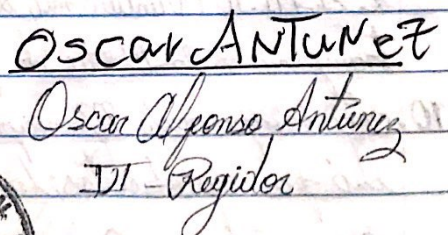 Oscar ANTuNez
Oscar Alfonso Antúnez
IV - Regidor